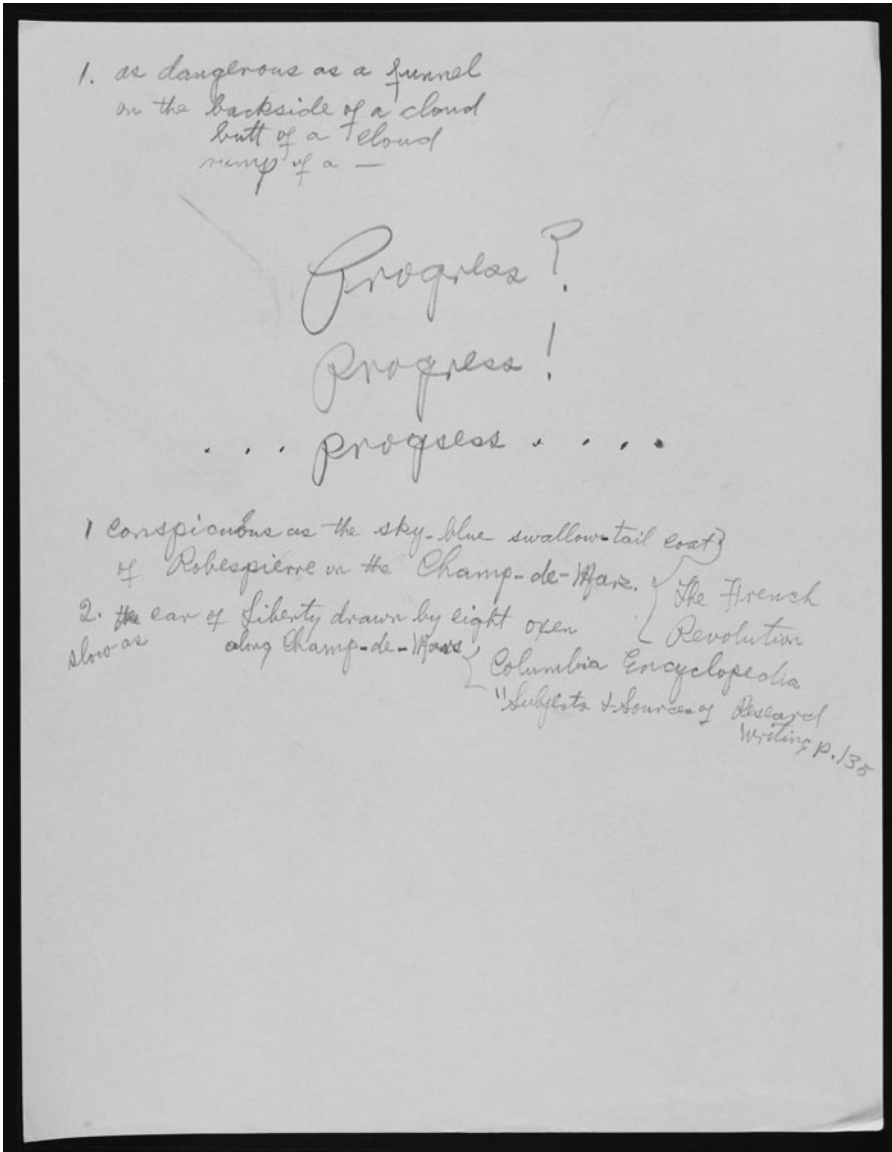 1. as dangerous as a funnel
on the backside of a cloud
butt of a cloud
rump of a —
Progress?
Progress!
. . . progress . . . .
1 Conspicuous as the sky-blue swallow-tail coat
of Robespierre on the Champ-de-Marz.
{ The French
Revolution
2. the car of Liberty drawn by eight oxen
slow as along Champ-de-Mars,
{ Columbia Encyclopedia
"Subjects & Sources of Research
Writing p. 135